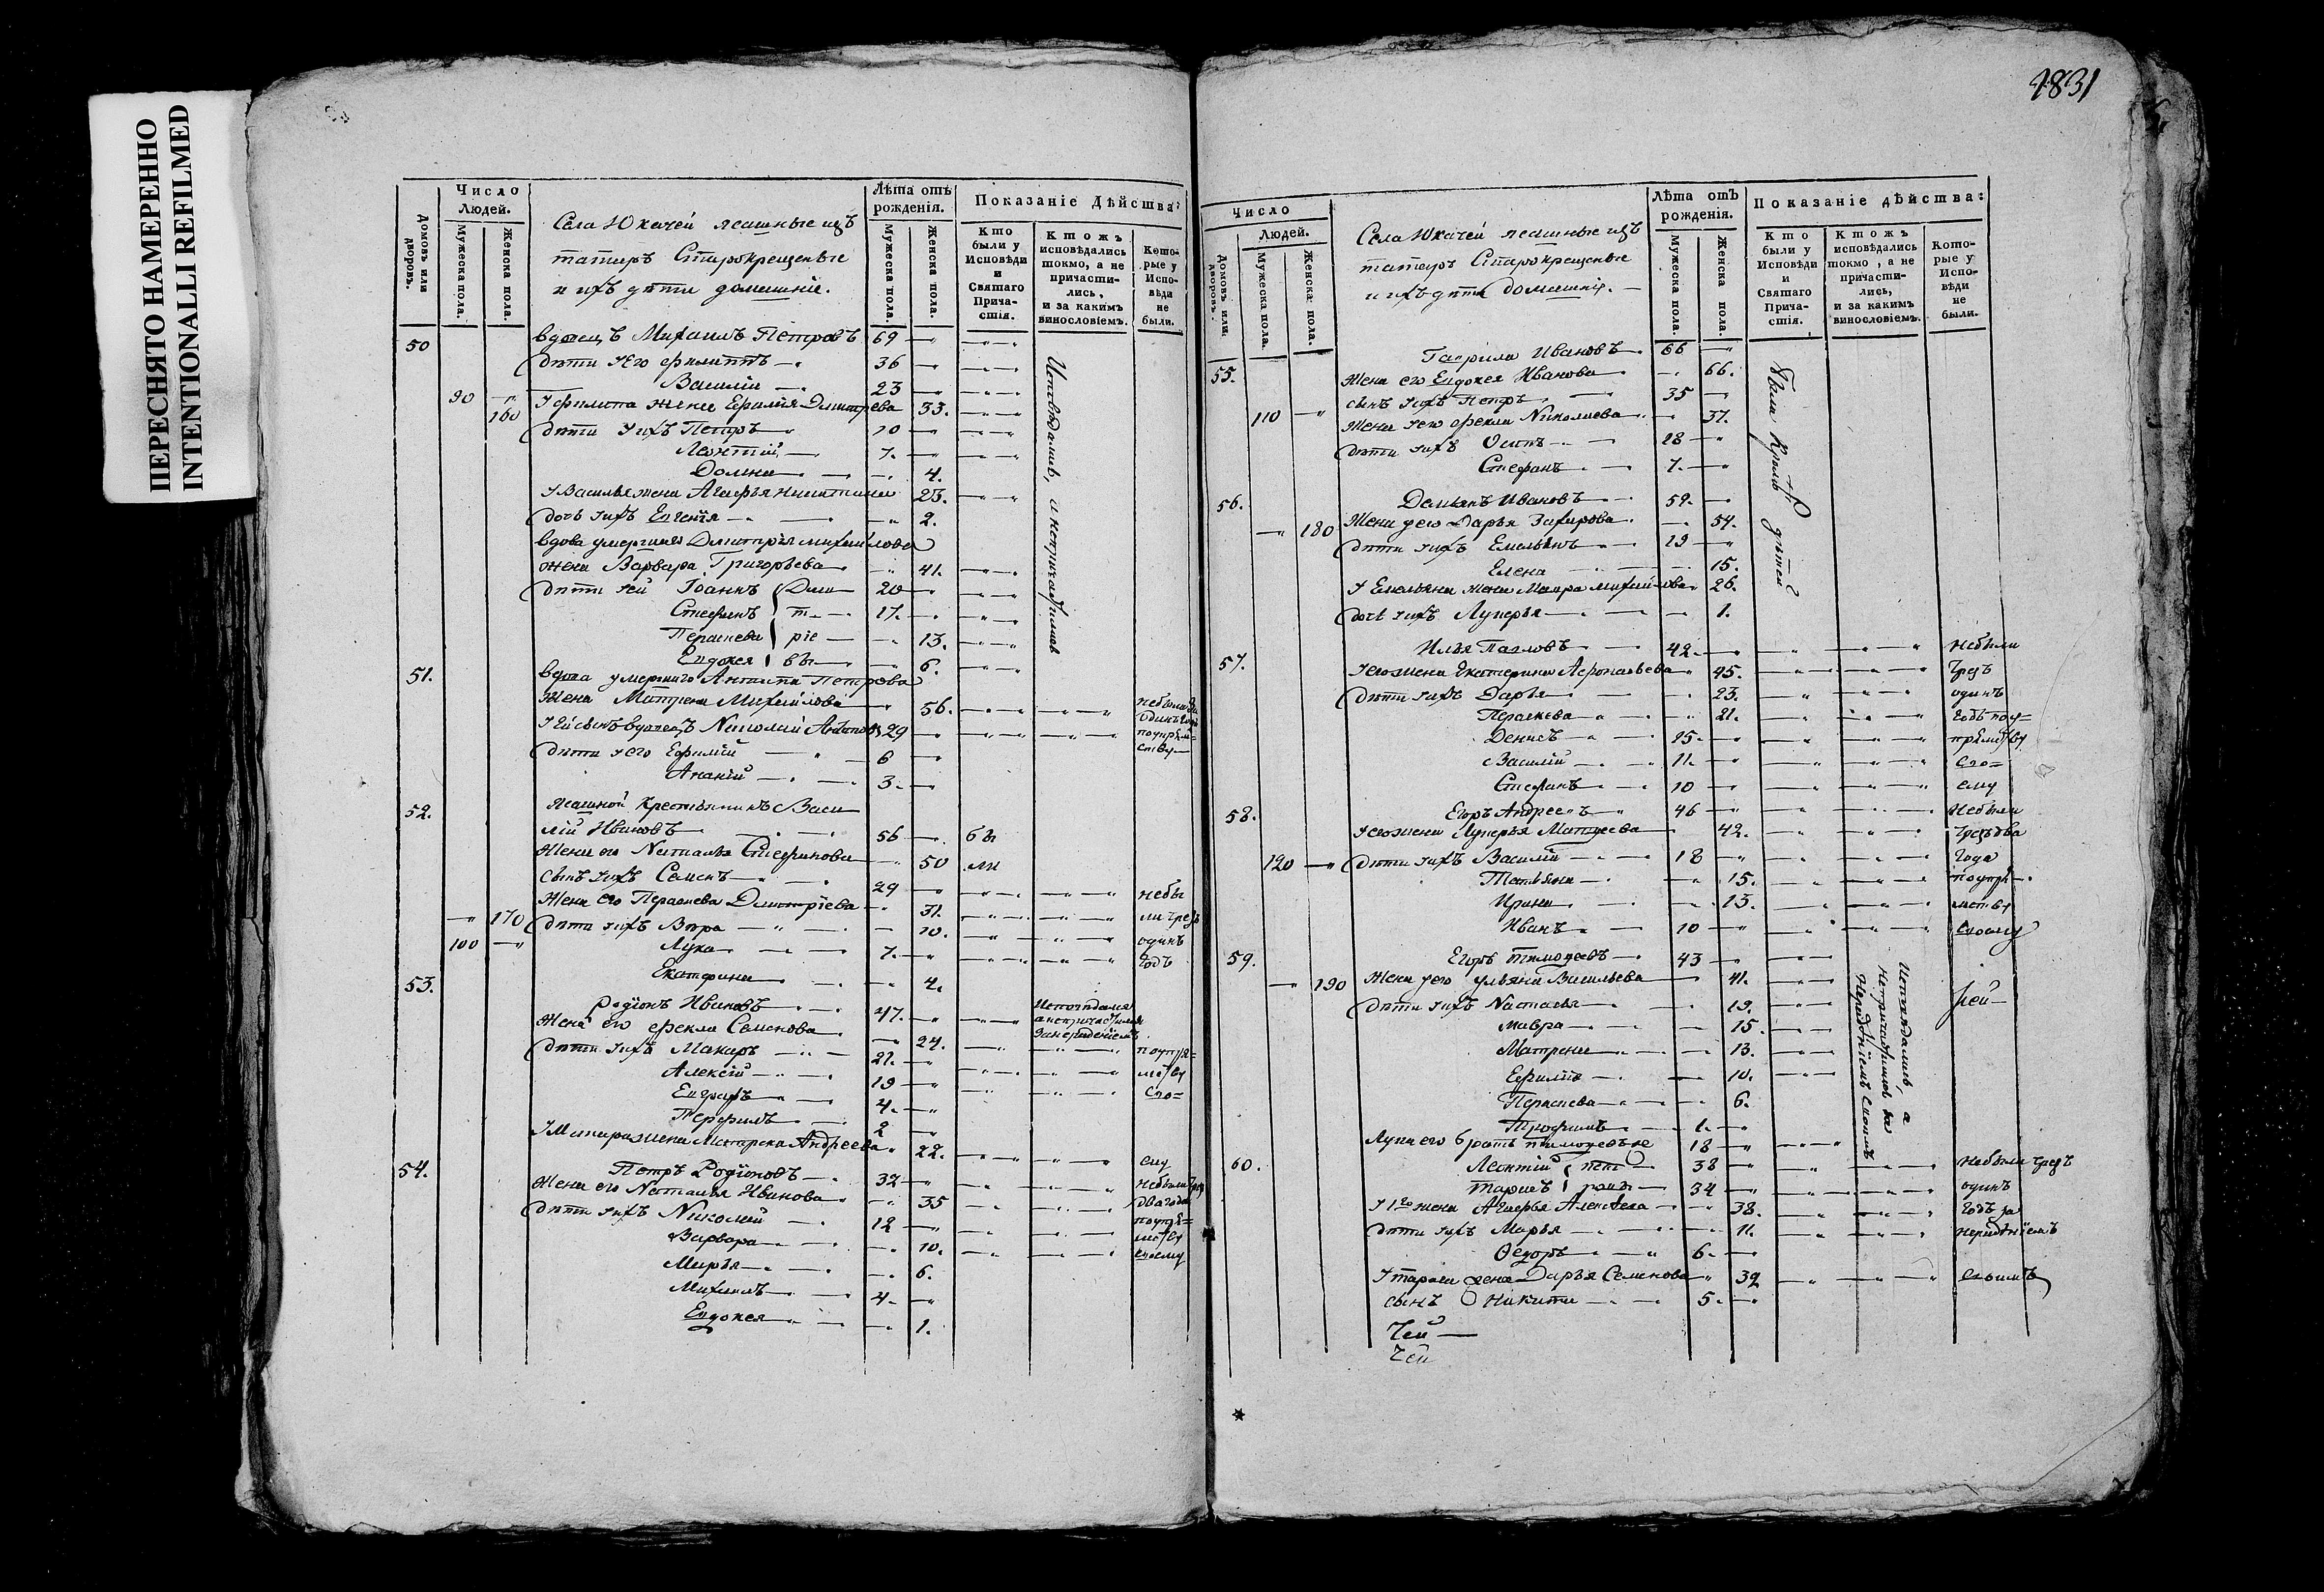 ПЕРЕСНЯТО НАМЕРЕННО
INTENTIONALLI REFILMED
1831
Число
Людей.
Домовъ или дворовъ.
Мужеска пола.
Женска пола.
Села Юкачей ясашные изъ
татаръ Старокрещеные
и ихъ дѣти домашніе.
Лѣта отъ
рожденія.
Мужеска пола.
Женска пола.
Показаніе Дѣйства:
Кто были у Исповѣди и Святаго Прича-стія.
Ктожъ исповѣдались токмо, а не причасти-лись, и за какимъ винословіемъ.
Кото-рые у Испо-вѣди не были.
50 вдовецъ Михаилъ Петровъ 69
дѣти его Филиппъ 36
Василій 23
90 160 У Филипа жена Ефимія Дмитрева 33.
дѣти ихъ Петръ 10
Леонтій 7.
Домна 4.
У Василья жена Агафья Никитина 23.
дочь ихъ Евгенія 2.
вдова умершаго Дмитрія Михайлова
жена Варвара Григорьева 41.
дѣти ей Іоаннъ 20
Стефанъ 17.
Параскева 13.
Евдокея 6.
Исповѣдались, а не причастились
51. вдова умершаго Антипа Петрова
жена Матрена Михайлова 56.
сынъ вдовецъ Николай Антиповъ 29
дѣти его Ефимій 6
Ананій 3.
52. Ясашной крестьянинъ Васи
лій Ивановъ 56 бы
Жена его Наталья Стефанова 50 ли
сынъ ихъ Семенъ 29 небы
Жена его Параскева Дмитріева 31. ли чрезъ
170 дѣти ихъ Вѣра 10. одинъ
100 Лука 7. годъ
Екатерина 4.
53. Родіонъ Ивановъ 47.
Жена его Фекла Семенова 24.
дѣти ихъ Макаръ 21.
Алексѣй 19
Евграфъ 4.
2
жена Матрена Андреева 22.
54. Петръ Родіоновъ 32
Жена его Наталья Иванова 35 два года
дѣти ихъ Николай 12
Варвара 10. своему
Марья 6.
Михаилъ 4.
Евдокея 1.
Число
Людей.
Домовъ или дворовъ.
Мужеска пола.
Женска пола.
Села Юкачей ясашные изъ
татаръ Старокрещеные
и ихъ дѣти домашніе.
Лѣта отъ
рожденія.
Мужеска пола.
Женска пола.
Показаніе дѣйства:
Кто были у Исповѣди и Святаго Прича-стія.
Ктожъ исповѣдались токмо, а не причасти-лись, и за какимъ винословіемъ.
Кото-рые у Испо-вѣди не были.
55. Гаврила Ивановъ 66
Жена его Евдокея Иванова 66.
сынъ ихъ Петръ 35
110 Жена его Фекла Николаева 37.
дѣти ихъ Осипъ 18
Стефанъ 7.
Были кромѣ дѣтей
56. Демьянъ Ивановъ 59.
180 Жена его Дарья Захарова 54.
дѣти ихъ Емельянъ 19
Елена 15.
У Емельяна жена Мавра Михайлова 26.
дочь ихъ Лукерья 1.
57. Илья Павловъ 42 небыли
жена Екатерина Афонасьева 45. чрезъ
дѣти ихъ Дарья 23. одинъ
Параскева 21. годъ по у=
Денисъ 15. прямству
Василій 11. сво=
Стефанъ 10 ему
58. Егоръ Андреевъ 46 небыли
жена Лукерья Матвеева 42. чрезъ два
120 дѣти ихъ Василій 18 года
Татьяна 15. поупря
Ирина 13. мству
Иванъ 10 своему
59. Егоръ Тимофеевъ 43
190 Жена его Ульяна Васильева 41.
дѣти ихъ Наталья 19.
Мавра 15.
Матрена 13.
Ефимія 10.
Параскева 6.
Трофимъ 1.
Исповѣдались, а непричастились за нерадѣніемъ своимъ
Лука его братъ Тимофеевъ 18
60. Леонтій 38 небыли чрезъ
Тарасъ 34 одинъ
жена Агафья Алексѣева 38. годъ за
дѣти ихъ Марья 11. нерадѣніемъ
Ѳедоръ 6.
У Тараса жена Дарья Семенова 32 своимъ
сынъ Никита 5.